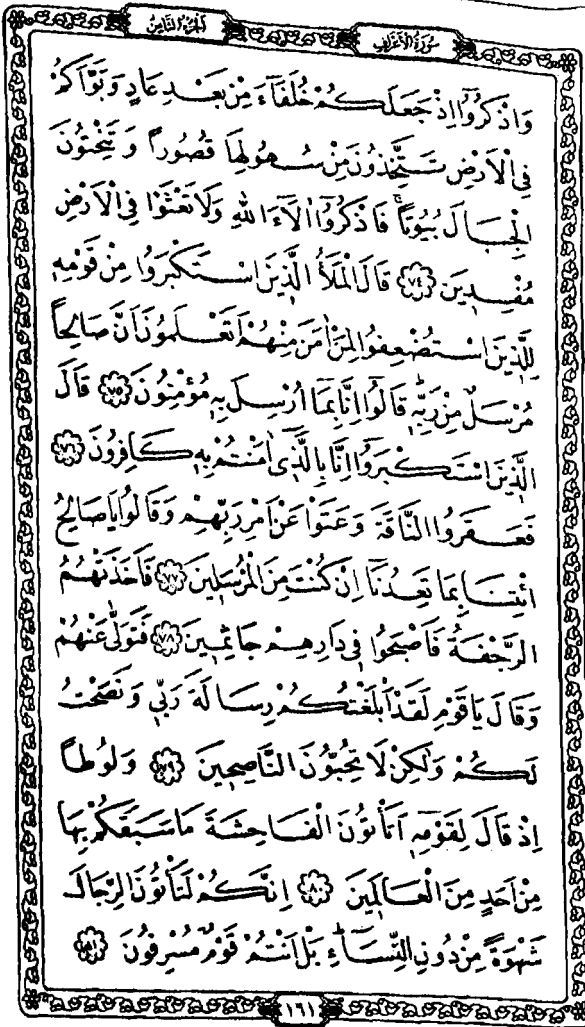 الجزء الثامن
سورة الأعراف
وَاذْكُرُوٓا اِذْ جَعَلَكُمْ خُلَفَٓاءَ مِنْ بَعْدِ عَادٍ وَبَوَّاَكُمْ
فِي الْاَرْضِ تَتَّخِذُونَ مِنْ سُهُولِهَا قُصُوراً وَتَنْحِتُونَ
الْجِبَالَ بُيُوتاًۚ فَاذْكُرُوٓا اٰلَٓاءَ اللّٰهِ وَلَا تَعْثَوْا فِي الْاَرْضِ
مُفْسِدِينَ ﴿٧٤﴾ قَالَ الْمَلَأُ الَّذِينَ اسْتَكْبَرُوا مِنْ قَوْمِهِ
لِلَّذِينَ اسْتُضْعِفُوا لِمَنْ اٰمَنَ مِنْهُمْ اَتَعْلَمُونَ اَنَّ صَالِحاً
مُرْسَلٌ مِنْ رَبِّهِۜ قَالُوٓا اِنَّا بِمَٓا اُرْسِلَ بِهِ مُؤْمِنُونَ ﴿٧٥﴾ قَالَ
الَّذِينَ اسْتَكْبَرُوٓا اِنَّا بِالَّذِٓي اٰمَنْتُمْ بِهِ كَافِرُونَ ﴿٧٦﴾
فَعَقَرُوا النَّاقَةَ وَعَتَوْا عَنْ اَمْرِ رَبِّهِمْ وَقَالُوا يَا صَالِحُ
ائْتِنَا بِمَا تَعِدُنَٓا اِنْ كُنْتَ مِنَ الْمُرْسَلِينَ ﴿٧٧﴾ فَاَخَذَتْهُمُ
الرَّجْفَةُ فَاَصْبَحُوا فِي دَارِهِمْ جَاثِمِينَ ﴿٧٨﴾ فَتَوَلّٰى عَنْهُمْ
وَقَالَ يَا قَوْمِ لَقَدْ اَبْلَغْتُكُمْ رِسَالَةَ رَبِّي وَنَصَحْتُ
لَكُمْ وَلٰكِنْ لَا تُحِبُّونَ النَّاصِحِينَ ﴿٧٩﴾ وَلُوطاً
اِذْ قَالَ لِقَوْمِهِٓ اَتَأْتُونَ الْفَاحِشَةَ مَا سَبَقَكُمْ بِهَا
مِنْ اَحَدٍ مِنَ الْعَالَمِينَ ﴿٨٠﴾ اِنَّكُمْ لَتَأْتُونَ الرِّجَالَ
شَهْوَةً مِنْ دُونِ النِّسَٓاءِۜ بَلْ اَنْتُمْ قَوْمٌ مُسْرِفُونَ ﴿٨١﴾
١٦١